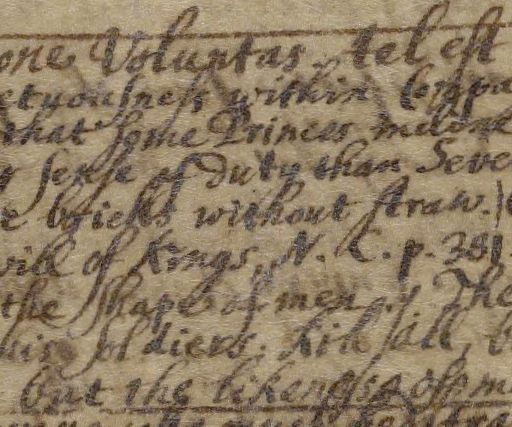 one Voluntas, tel est
within
that some Princes
sense of duty than Seve
bricks without straw.
of Kings, N. C. p. 381.
the shapes of men. The
his soldiers, kill all, b
but the likeness of m